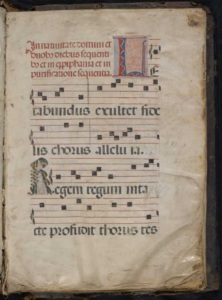 In nativitate domini et
duobus diebus sequenti
bus et in epiphania et in
purificatione sequentia.
L
tabundus exultet fide
lis chorus allelu ia.
Regem regum inta
cte profudit thorus res